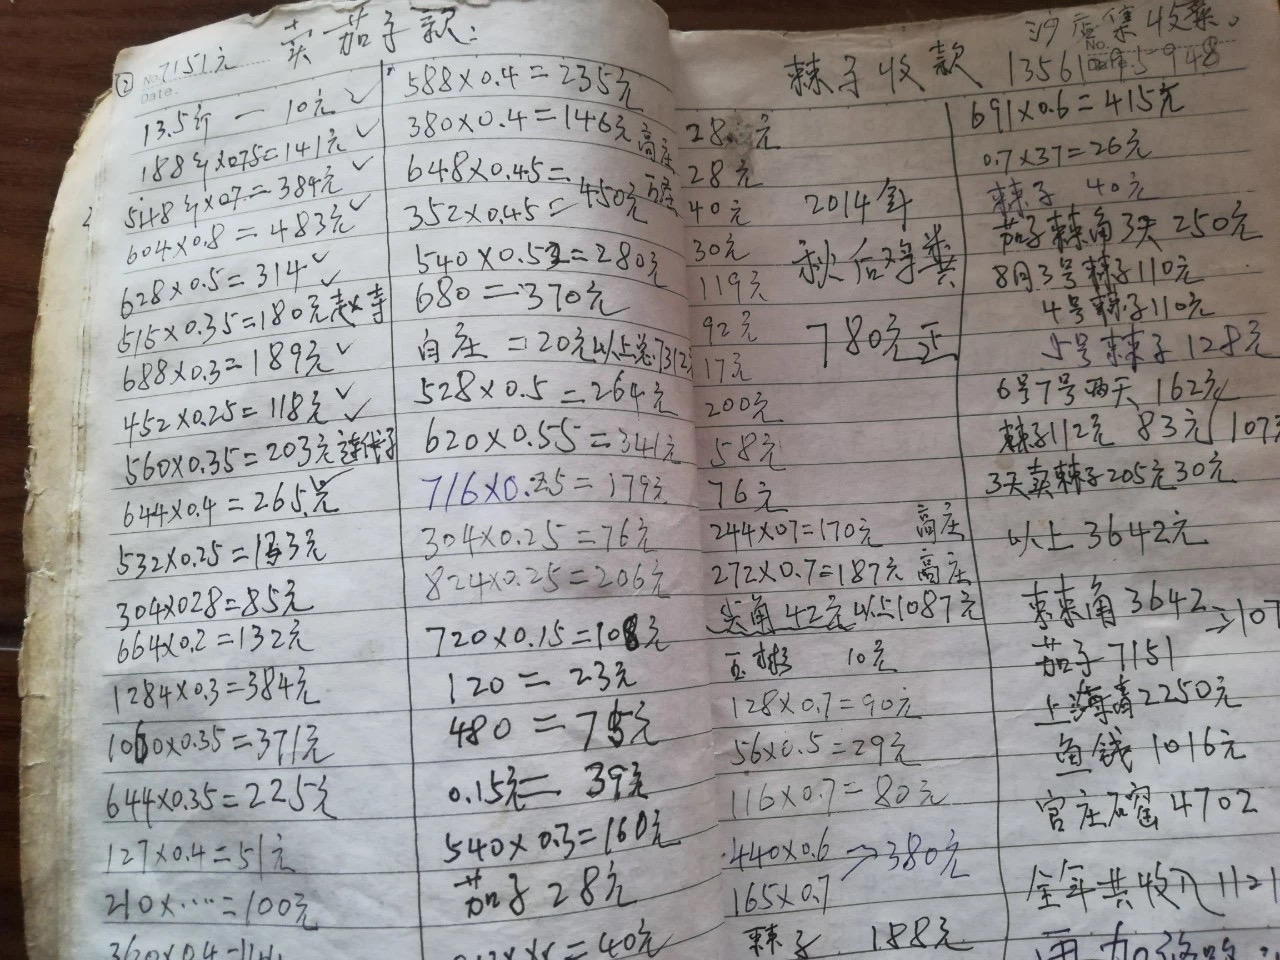 ② 7151元 卖茄子款:
No.
Date.
13.5斤 — 10元 ✓
188斤×075=141元 ✓
548斤×07=384元 ✓
604×0.8=483元 ✓
628×0.5=314 ✓
515×0.35=180元
688×0.3=189元 ✓
452×0.25=118元 ✓
560×0.35=203元
644×0.4=265元
532×0.25=133元
304×028=85元
664×0.2=132元
1284×0.3=384元
1060×0.35=371元
644×0.35=225元
127×0.4=51元
210×……=100元
588×0.4=235元
380×0.4=146元 高庄
648×0.45=
352×0.45=450元
540×0.53=280元
680=370元
白庄=20元以上总7312
528×0.5=264元
620×0.55=341元
716×0.25=179元
304×0.25=76元
824×0.25=206元
720×0.15=108元
120=23元
480=75元
0.15元=39元
540×0.3=160元
茄子28元
=40元
棘子收款
28元
28元
40元
30元
119元
92元
17元
200元
58元
76元
2014年
秋后
780元正
244×07=170元 高庄
272×0.7=187元 高庄
尖角42元以上1087元
10元
128×0.7=90元
56×0.5=29元
116×0.7=80元
440×0.6
165×0.7 →380元
棘子 188元
沙店集收菜。
No.
691×0.6=415元
0.7×37=26元
棘子 40元
茄子棘角3天250元
8月3号棘子110元
4号棘子110元
5号棘子128元
6号7号两天162元
棘子112元 83元 107
3天卖棘子205元30元
以上3642元
棘角3642
茄子7151
上海青2250元
鱼钱1016元
官庄石窑4702
全年共收入1121
再加